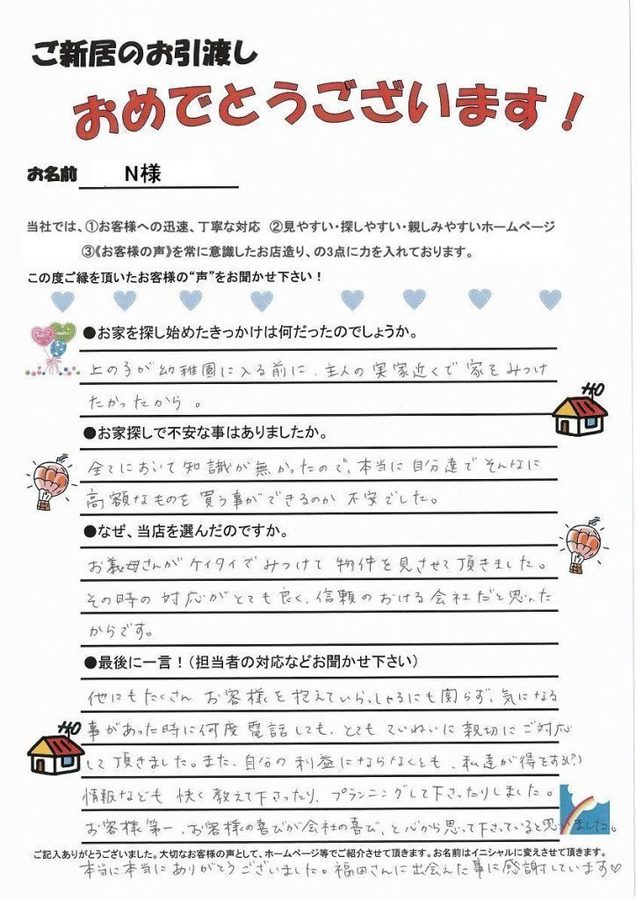 ご新居のお引渡し
おめでとうございます!
お名前 N様
当社では、①お客様への迅速、丁寧な対応 ②見やすい・探しやすい・親しみやすいホームページ
③《お客様の声》を常に意識したお店造り、の3点に力を入れております。
この度ご縁を頂いたお客様の“声”をお聞かせ下さい!
●お家を探し始めたきっかけは何だったのでしょうか。
上の子が幼稚園に入る前に、主人の実家近くで家をみつけ
たかったから。
●お家探しで不安な事はありましたか。
全てにおいて知識が無かったので、本当に自分達でそんなに
高額なものを買う事ができるのか不安でした。
●なぜ、当店を選んだのですか。
お義母さんがケイタイでみつけて物件を見させて頂きました。
その時の対応がとても良く、信頼のおける会社だと思った
からです。
●最後に一言!(担当者の対応などお聞かせ下さい)
他にもたくさんお客様を抱えていらっしゃるにも関らず、気になる
事があった時に何度電話しても、とてもていねいに親切にご対応
して頂きました。また、自分の利益にならなくとも、私達が得をする(?)
情報なども快く教えて下さったり、プランニングして下さったりしました。
お客様第一、お客様の喜びが会社の喜び、と心から思って下さっていると思いました。
ご記入ありがとうございました。大切なお客様の声として、ホームページ等でご紹介させて頂きます。お名前はイニシャルに変えさせて頂きます。
本当に本当にありがとうございました。福田さんに出会えた事に感謝しています♡